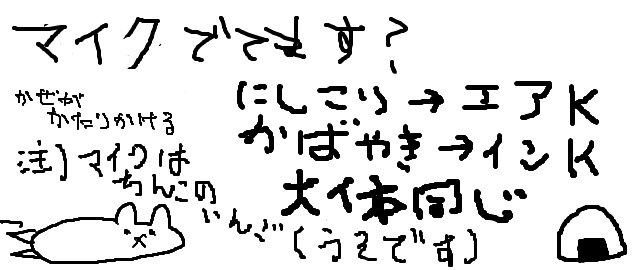 マイクでてます?
かぜが
かたりかける
注)マイクは
ちんこの
いんご
にしこり→エアK
かばやき→インK
大体同じ
(うえです)